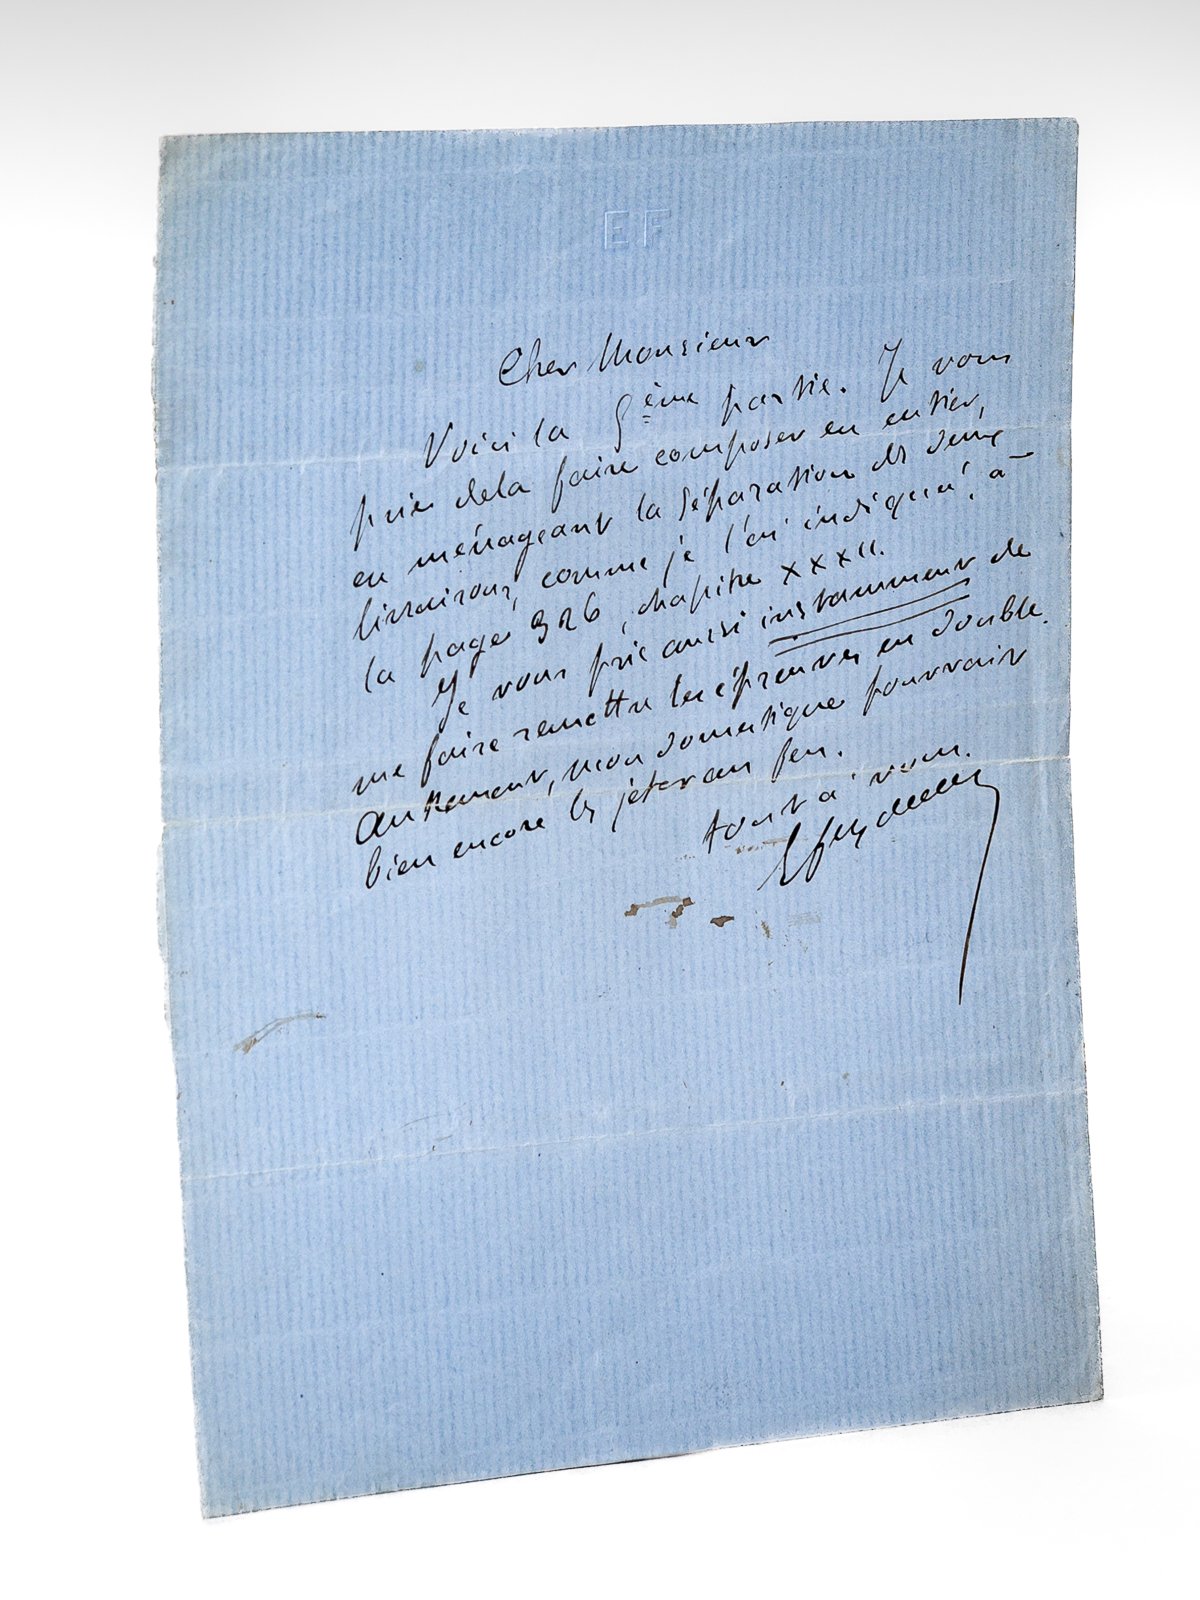 EF
Cher Monsieur
Voici la 5ème partie. Je vous
prie de la faire composer en entier,
en ménageant la séparation des deux
livraisons, comme je l'ai indiqué, à
la page 326, chapitre XXXII.
Je vous prie aussi instamment de
me faire remettre les épreuves en double.
Autrement, mon domestique pourrait
bien encore les jeter au feu.
tout à vous.